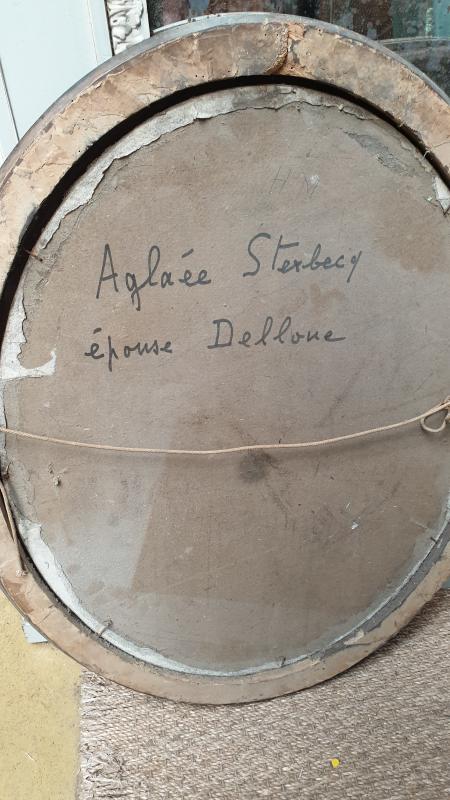 H M
Aglaée Sterbecq
épouse Delloue